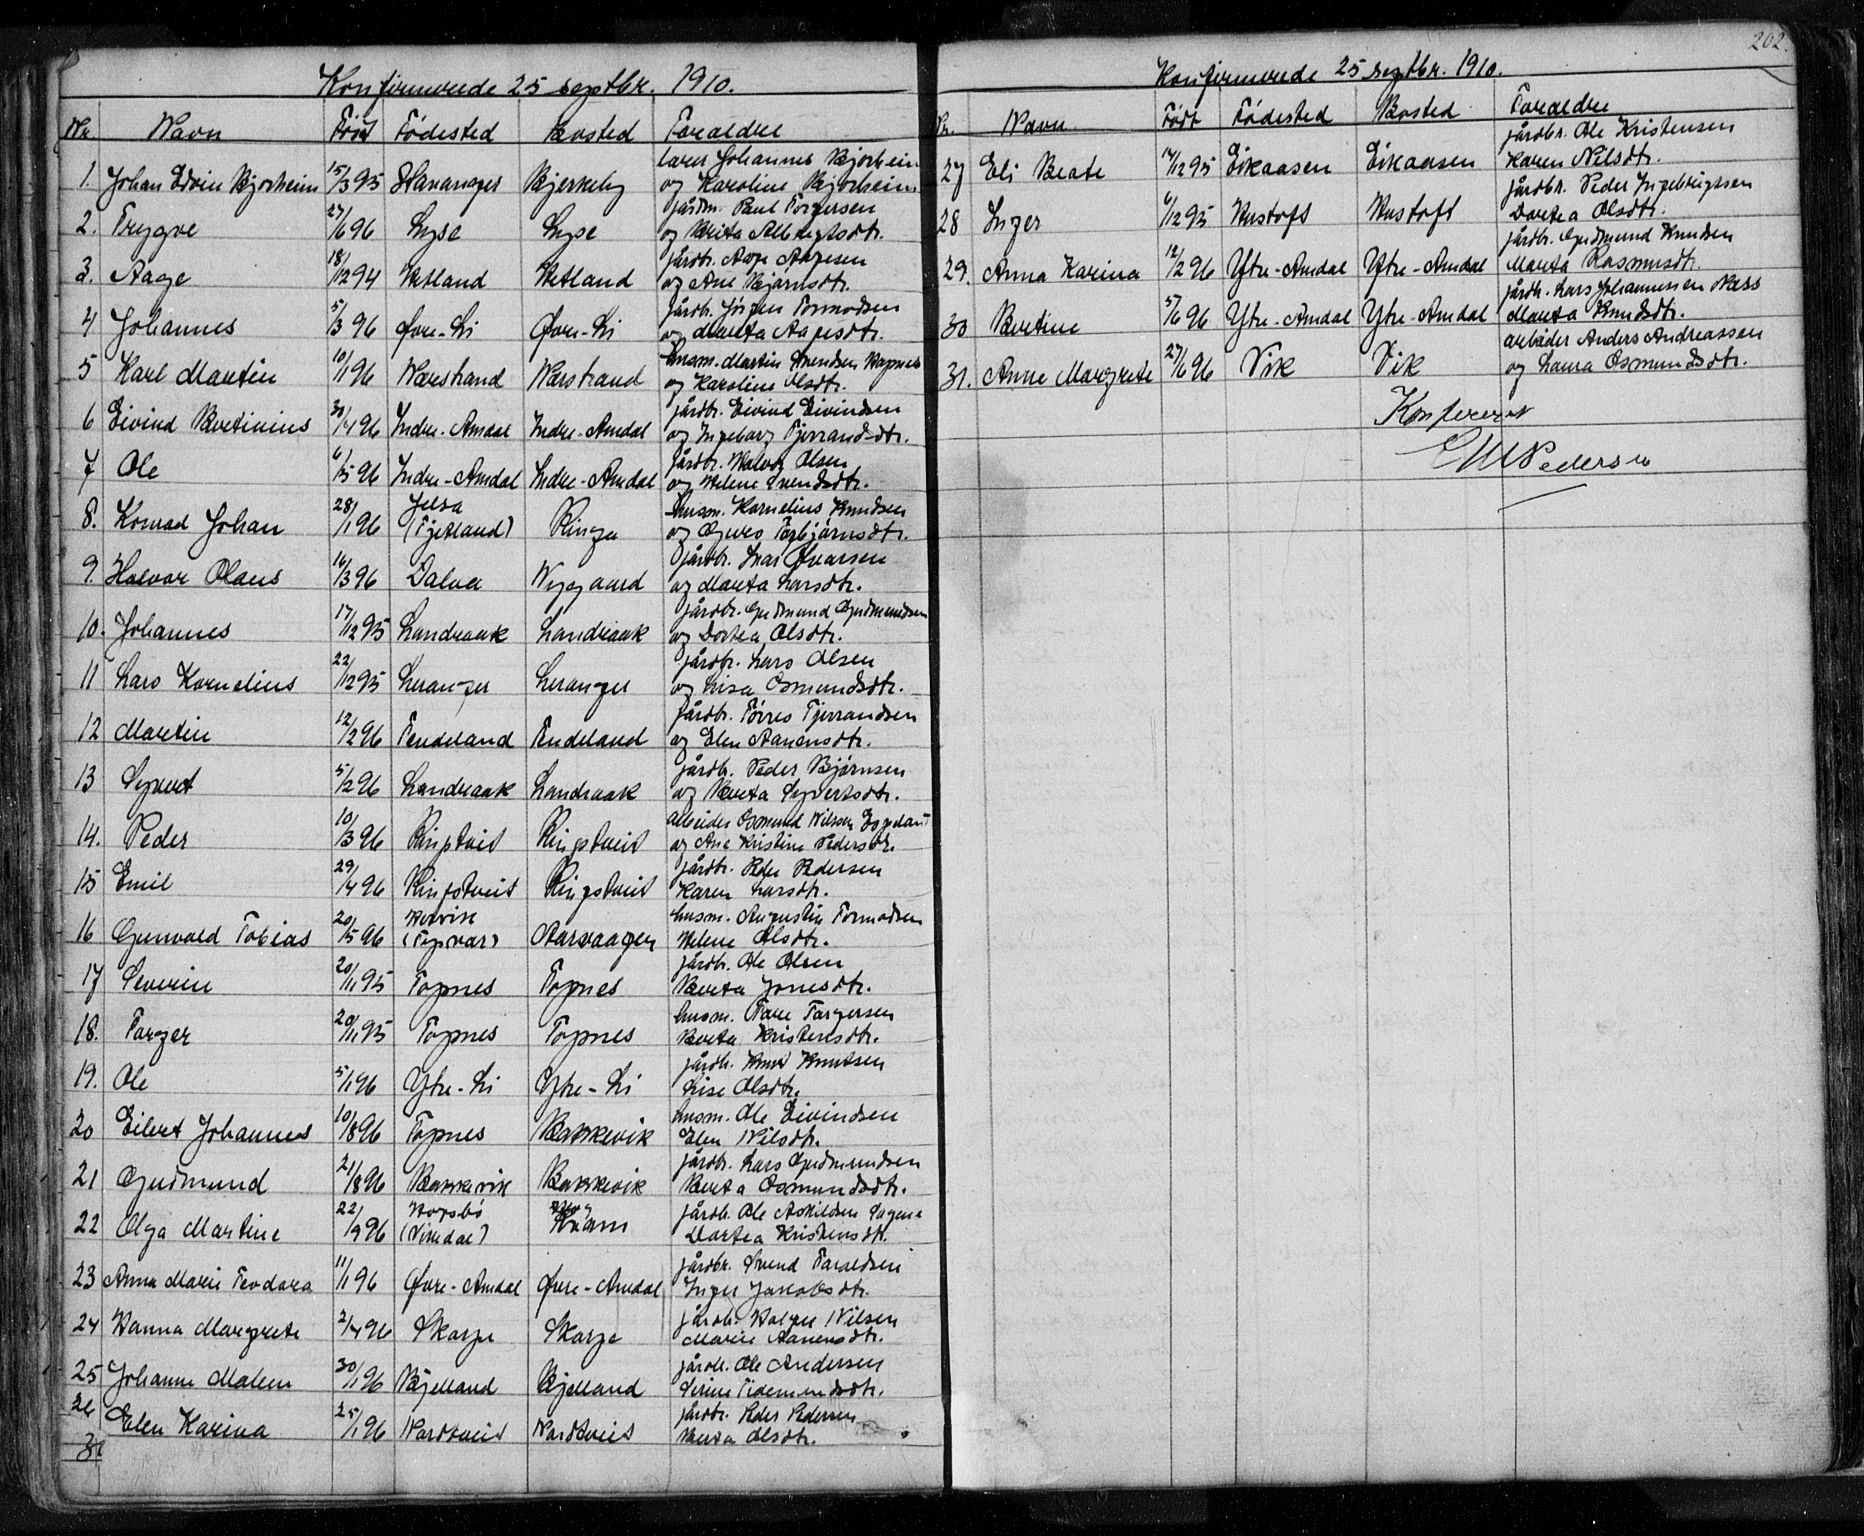 Konfirmerede 25 septbr. 1910.
Nr. Navn Født Fødested Bosted Foraldre
1. Johan Edvin Bjorheim 15/3 95 Stavanger Bjerkely lærer Johannes Bjorheim
og Karoline Bjorheim
2. Trygve 27/6 96 Lyse Lyse gårdm. Paul Torgersen
og Berta Albregtsdtr.
3. Aage 18/12 94 Vetland Vetland gårdbr. Aage Aagesen
og Ane Bjørnsdtr.
4 Johannes 5/3 96 Øvre-Li Øvre-Li gårdbr. Jørgen Tormodsen
og Marta Aagesdtr.
5 Karl Martin 10/1 96 Narstrand Narstrand husm. Martin Svendsen
og Karoline Olsdtr.
6 Eivind Bertinius 30/4 96 Indre-Amdal Indre-Amdal gårdbr. Eivind Eivindsen
og Ingeborg Tjerrandsdtr.
7 Ole 6/5 96 Indre-Amdal Indre-Amdal gårdbr. Halvor Olsen
og Helene Svendsdtr.
8. Konrad Johan 28/1 96 Jelsa
(Tjetland) Ringa husm. Kornelius Knudsen
og Torbjørnsdtr.
9. Halvor Olaus 16/3 96 Dalva Nygaard gårdbr. Ivar Ivarsen
og Marta Larsdtr.
10. Johannes 17/12 95 Landraak Landraak gårdbr. Gudmund Gudmundsen
og Dortea Olsdtr.
11 Lars Kornelius 22/12 95 Leranger Leranger gårdbr. Lars Olsen
og Lisa Osmundsdtr.
12 Martin 12/2 96 Tendeland Tendeland gårdbr. Tørres Tjerrandsen
og Elen Aanensdtr.
13 Syvert 5/2 96 Landraak Landraak gårdb. Peder Bjørnsen
og Berta Syvertsdtr.
14. Peder 10/3 96 Ringstveit Ringstveit arbeider Osmund Nilsen
og Ane Kristine Pedersdtr.
15 Emil 29/4 96 Ringstveit Ringstveit gårdbr. Peder Pedersen
Karen Larsdtr.
16 Gunvald Tobias 20/5 96 Hervik
(Tysvær) Aarvaagen husm. Augustin Tormodsen
Helene Olsdtr.
17 Severin 20/11 95 Topnes Topnes gårdb. Ole Olsen
Berta Jonesdtr.
18. Torger 20/11 95 Topnes Topnes husm. Tore Torgersen
Berta Kristensdtr.
19. Ole 5/1 96 Ytre-Li Ytre-Li gårdb. Knud Knutsen
Lise Olsdtr.
20 Eilert Johannes 10/8 96 Topnes Bakkevik husm. Ole Eivindsen
Elen Nilsdtr.
21 Gudmund 21/8 96 Bakkevik Bakkevik gårdb. Lars Gudmundsen
Berta Osmundsdtr.
22 Olga Martine 22/9 96 Hopsbø
(Vikedal) Hvam gårdb. Ole Askildsen
Dortea Kristensdtr.
23 Anna Marie Teodora 11/1 96 Øvre-Amdal Øvre-Amdal gårdbr. Svend Taraldsen
Inger Jakobsdtr.
24 Hanna Margrete 2/4 96 Skorge Skorge gårdb. Holger Nilsen
Marie Aanensdtr.
25 Johanne Malen 30/1 96 Bjelland Bjelland gårdb. Ole Andersen
Serine Tidemandsdtr.
26 Elen Karina 25/1 96 Nordtveit Nordtveit gårdbr. Peder Pedersen
Berta Olsdtr.
31
202.
Konfirmerede 25 septbr. 1910.
Nr. Navn Født Fødested Bosted Foraldre
27 Eli Beate 14/12 95 Eikaasen Eikaasen gårdbr. Ole Kristensen
Karen Nilsdtr.
28 Inger 6/12 95 Hustoft Hustoft gårdbr. Peder Ingebrigtsen
Dortea Olsdtr.
29. Anna Karina 12/2 96 Ytre-Amdal Ytre-Amdal gårdbr. Gudmund Knudsen
Marta Rasmusdtr.
30 Bertine 5/6 96 Ytre-Amdal Ytre-Amdal gårdb. Lars Johannessen Næss
Marta Knudsdtr.
31. Anne Margrete 27/6 96 Vik Vik arbeider Anders Andreassen
og Laura Osmundsdtr.
Konfereret
Pedersen